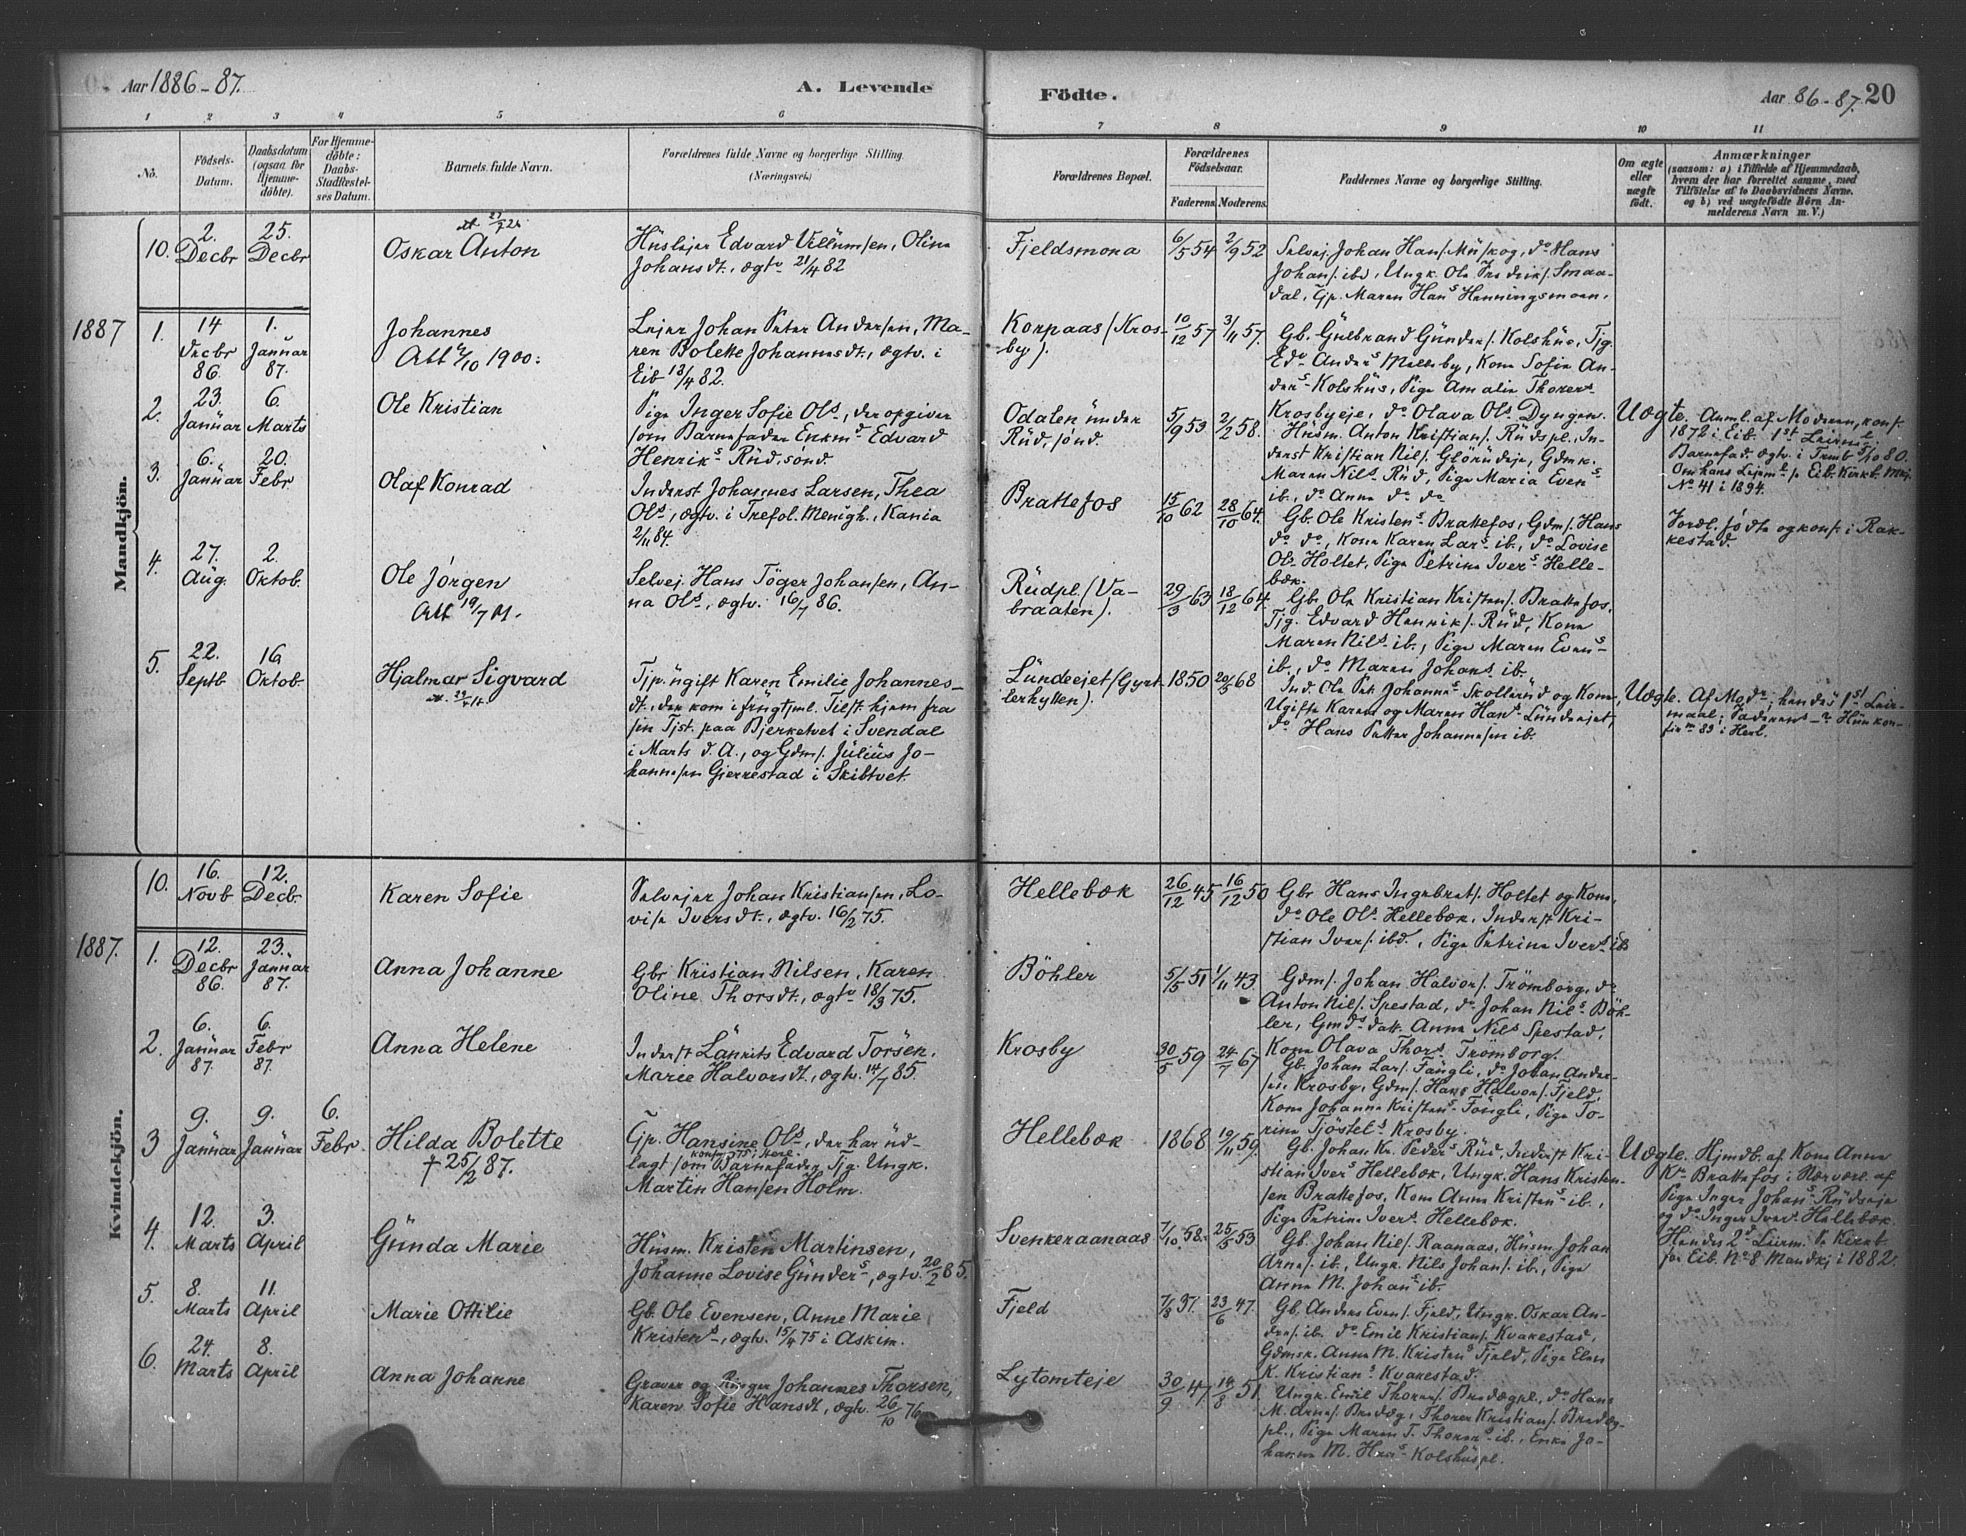 Aar 1886-87.
A. Levende
Födte.
Aar 86-87. 20
1 2 3 4 5 6 7 8 9 10 11
No.
Födsels-Datum.
Daabsdatum (ogsaa for Hjemme-döbte).
For Hjemme-döbte: Daabs-Stadfæstelses Datum.
Barnets fulde Navn.
Forældrenes fulde Navne og borgerlige Stilling.
(Næringsvei.)
Forældrenes Bopæl.
Forældrenes Födselsaar.
Faderens. Moderens.
Faddernes Navne og borgerlige Stilling.
Om ægte eller uægte födt.
Anmærkninger
(saasom: a) i Tilfælde af Hjemmedaab, hvem der har forrettet samme, med Tilföielse af to Daabsvidners Navne, og b) ved uægtefödte Börn Anmelderens Navn m. V.)
Mandkjön.
10. 2. Decbr 25. Decbr
Oskar Anton
Edvard Villumsen, Olina
Johansdt., ægtv. 21/4 82
Fjeldsmona
6/5 54 2/9 52
Selvej. Johan Hans. Muskog, do Hans
Johans. ibd, Ungk. Ole Fredriks. Smaa-
dal, Gp. Maren Hans Henningsmoen.
1887
1. 14 Decbr 86. 1. Januar 87.
Johannes
Att 2/10 1900.
Lejer Johan Peter Andersen, Ma-
ren Bolette Johannesdt., ægtv. i
Eib 13/4 82.
Korpaas (Kros-
by).
10/12 57 3/11 57.
Gb. Gulbrand Gunders. Kolshus, Tjg.
Edv. Anders Melleby, Kone Sofie An-
ders Kolshus, Pige Amalie Thorers
Krosbyeje, do Olava Ols Dyngen.
2. 23. Januar 6. Marts
Ole Kristian
Pige Inger Sofie Ols, der opgiver
som Barnefader Enkemd Edvard
Henriks Rüd, sönd.
Odalen under
Rüd, sönd.
5/9 53 2/2 58.
Husm. Anton Kristians. Rüdspl., In-
derst Kristian Nils. Glörudeje, Gdmk.
Maren Nils Rüd, Pige Maria Evens
ib., do Anne do do
Uægte.
Anml. af Moderen, konf.
1872 i Eib. 1st Leirml.
Barnefad. ægtv. i Trømb 5/10 80.
Om hans Lejem. se Eib. Kirkb. Mkj.
No 41 i 1894.
3. 6. Januar 20. Febr
Olaf Konrad
Inderst Johannes Larsen, Thea
Ols, ægtv. i Trefol. Menigh., Kania
2/11 84.
Brattefos
15/10 62 28/10 64.
Gb. Ole Kristens Brattefos, Gdms. Hans
do do, Kone Karen Lars ib., do Lovise
Ols Holtet, Pige Petrine Ivers Helle-
bæk.
Foræl. födte og konf. i Rak-
kestad.
4. 27. Aug. 2. Oktob.
Ole Jörgen
Att 19/7 11.
Selvej. Hans Töger Johansen, An-
na Ols, ægtv. 16/7 86.
Rüdpl. (Va-
braaten).
29/3 63 18/12 64.
Gbr. Ole Kristian Kristens. Brattefos,
Tjg. Edvard Henriks. Rüd, Kone
Maren Nils ib., Pige Maren Evens
ib., do Maren Johans ib.
5. 22. Septb 16. Oktob.
Hjalmar Sigvard
Tjp. ugift Karen Emilie Johannes-
dt., der kom i frugtsml. Tilst. hjem fra
sin Tjst. paa Bjerketvet i Svendal
i Marts d. A., og Gdms. Julius Jo-
hannesen Gjerrestad i Skibtvet.
Lundeejet (Gyrt-
lerhytten).
1850 20/5 68
Ind. Ole Pet. Johannes Skollerud og Kone,
Ugifte Karen og Maren Hans Lundeejet,
do Hans Petter Johannesen ib.
Uægte.
Af Modr.; hendes 1st Leir-
maal; Faderens — Hun kon-
firm 83 i Herl.
Kvindekjön.
10. 16. Novb 12. Decb.
Karen Sofie
Selvejer Johan Kristiansen, Lo-
vise Iversdt., ægtv. 16/2 75.
Hellebæk
26/12 45 16/12 50
Gbr Hans Ingebrets. Holtet og Kone,
do Ole Ols Hellebæk, Inderst Kri-
stian Ivers. ibd., Pige Petrine Ivers ib
1887.
1. 12. Decbr 86. 23. Januar 87.
Anna Johanne
Gbr Kristian Nilsen, Karen
Oline Thorsdt., ægtv 18/3 75.
Böhler
5/5 51 1/11 43.
Gdms. Johan Halvors. Trömborg, do
Anton Nils. Spestad, do Johan Nils Böh-
ler, Gmds datt. Anne Nils Spestad,
Kone Olava Thors Trömborg.
2. 6. Januar 87. 6. Febr 87.
Anna Helene
Inderst Laurits Edvard Torsen,
Marie Halvorsdt., ægtv. 14/7 85.
Krosby
30/5 59 24/7 67
Gb. Johan Lars. Fangli, do Johan Ander-
sen Krosby, Gdms. Hans Halvors. Fjeld,
Kone Johanne Kristens Fangli, Pige To-
rine Tjöstels Krosby.
3 9. Januar 9. Januar 6. Febr
Hilda Bolette
† 25/2 87.
Gp. Hansine Ols, der har ud-
konf. 75 i Herl.
lagt som Barnefader Tjg. Ungk.
Martin Hansen Holm.
Hellebæk
1868 19/11 59.
Gb. Johan Kr. Peders Rüd, Inderst Kri-
stian Ivers Hellebæk, Ungk. Hans Kristen-
sen Brattefos, Kone Anne Kristens ib.,
Pige Petrine Ivers Hellebæk.
Uægte.
Hjmdb. af Kone Anne
Kr. Brattefos i Nærværl. af
Pige Inger Johans Rüdseje
og do Inger Ivers Hellebæk.
Hendes 2d Leirm. Se Kirkb
for Eib. No 8 Mandkj i 1882.
4. 12. Marts 3. April
Gunda Marie
Husm. Kristen Martinsen,
Johanne Lovise Gunders, ægtv. 20/2 85.
Svenkeraanaas
7/10 58. 25/5 53
Gb. Johan Nils. Raanaas, Husm. Johan
Arnes. ib., Ungk. Nils Johans. ib., Pige
Anne M. Johans ib.
5. 8. Marts 11. April
Marie Ottilie
Gb. Ole Evensen, Anne Marie
Kristens, ægtv. 15/4 75 i Askim.
Fjeld
7/8 37. 23/6 47.
Gb. Anders Evens. Fjeld, Ungk. Oskar An-
ders. ib. do Emil Kristians. Kvakestad,
Gdmsk. Anne M. Kristens Fjeld, Pige Elen
K. Kristians Kvakestad.
6. 24. Marts 8. April
Anna Johanne
Graver og Ringer Johannes Thorsen,
Karen Sofie Hansdt., ægtv. 26/10 76
Lytomteje
30/9 47. 14/8 51.
Ungk. Emil Thorers. Brødægpl., do Hans
M. Arnes. Brødæg, Thorer Kristians. Brødæg-
pl., Pige Maren T. Thorers ib., Enke Jo-
hanne M. Hans Kolshuspl.